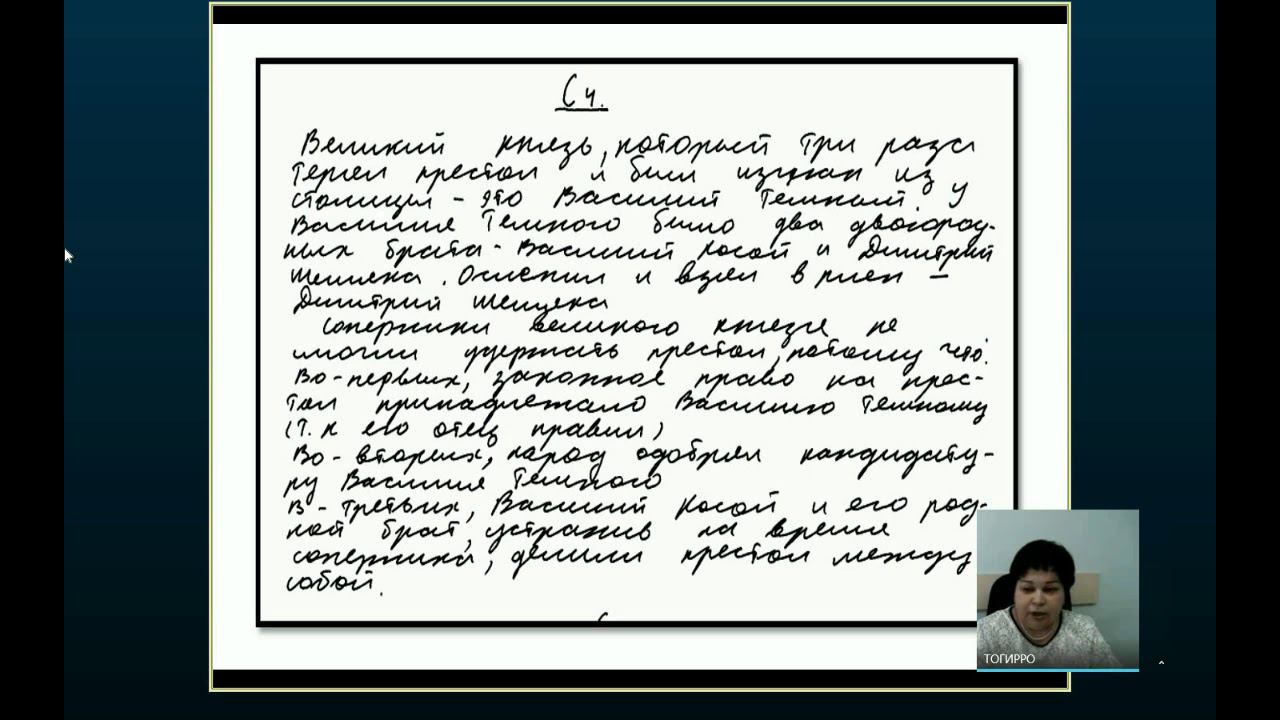 С4.
Великий князь, который три раза
терял престол и был изгнан из
столицы - это Василий Темный. У
Василия Темного было два двоюрод-
ных брата - Василий Косой и Дмитрий
Шемяка. Ослепил и взял в плен -
Дмитрий Шемяка
Соперники великого князя не
могли удержать престол, потому что:
Во-первых, законное право на прес-
тол принадлежало Василию Темному
(т.к его отец правил)
Во-вторых, народ одобрял кандидату-
ру Василия Темного
В-третьих, Василий Косой и его род-
ной брат, устранив на время
соперника, делили престол между
собой.
ТОГИРРО